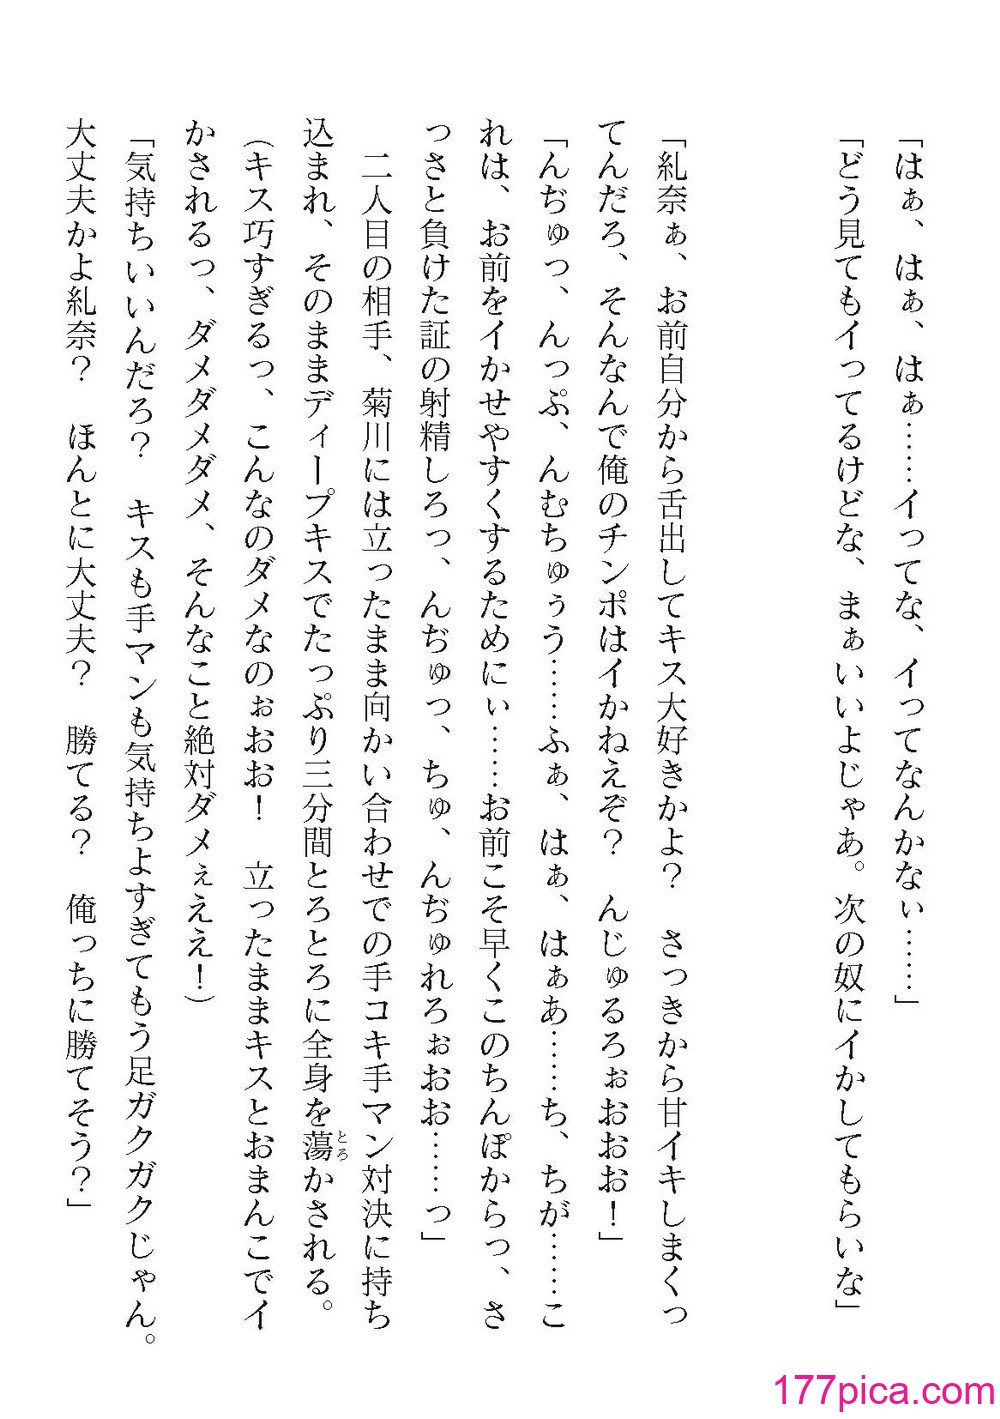 「はぁ、はぁ、はぁ……イってな、イってなんかなぃ……」
「どう見てもイってるけどな、まぁいいよじゃあ。次の奴にイかしてもらいな」
「糺奈ぁ、お前自分から舌出してキス大好きかよ？　さっきから甘イキしまくっ
てんだろ、そんなんで俺のチンポはイかねえぞ？　んじゅるろぉおおお！」
「んぢゅっ、んっぷ、んむちゅぅう……ふぁ、はぁ、はぁあ……ち、ちが……こ
れは、お前をイかせやすくするためにぃ……お前こそ早くこのちんぽからっ、さ
っさと負けた証の射精しろっ、んぢゅっ、ちゅ、んぢゅれろぉおお……っ」
　二人目の相手、菊川には立ったまま向かい合わせでの手コキ手マン対決に持ち
込まれ、そのままディープキスでたっぷり三分間とろとろに全身を蕩とろかされる。
（キス巧すぎるっ、こんなのダメなのぉおお！　立ったままキスとおまんこでイ
かされるっ、ダメダメダメ、そんなこと絶対ダメぇええ！）
「気持ちいいんだろ？　キスも手マンも気持ちよすぎてもう足ガクガクじゃん。
大丈夫かよ糺奈？　ほんとに大丈夫？　勝てる？　俺っちに勝てそう？」
177pica.com